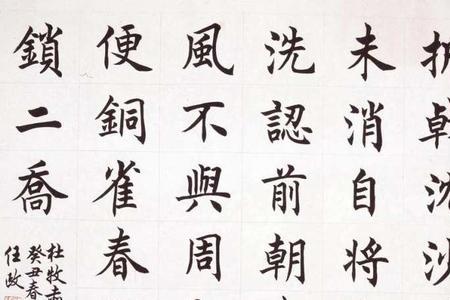 折戟沈沙
未消自將
洗認前朝
風不與周
便銅雀春
鎖二喬
杜牧赤
癸丑春
任政